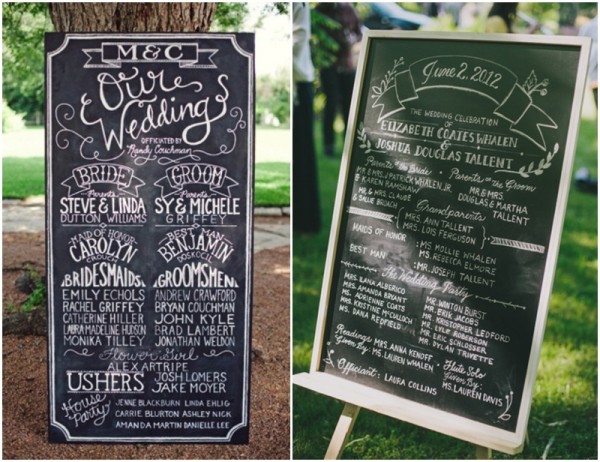 M&C
Our
Wedding
OFFICIATED BY
Randy Couchman
BRIDE
Parents
STEVE & LINDA
DUTTON WILLIAMS
MAID OF HONOR
CAROLYN
CROUCH
BRIDESMAIDS
EMILY ECHOLS
RACHEL GRIFFEY
CATHERINE HILLER
LAURA MADELINE HUDSON
MONIKA TILLEY
GROOM
Parents
SY & MICHELE
GRIFFEY
BEST MAN
BENJAMIN
GROOMSMEN
ANDREW CRAWFORD
BRYAN COUCHMAN
JOHN KYLE
BRAD LAMBERT
JONATHAN WELDON
Flower Girl
ALEX ARTRIPE
USHERS
JOSH LOMERS
JAKE MOYER
House
Party
JENNE BLACKBURN LINDA EHLIG
CARRIE BLURTON ASHLEY NICK
AMANDA MARTIN DANIELLE LEE
June 2, 2012
THE WEDDING CELEBRATION
OF
ELIZABETH COATES WHALEN
&
JOSHUA DOUGLAS TALLENT
Parents of the Bride
MR & MRS. J PATRICK WHALEN, JR.
& KAREN RAMSHAW
MR & MRS CLAUDE
& SALLIE BROACH
Parents of the Groom
MR. & MRS.
DOUGLAS & MARTHA
TALLENT
Grandparents
MRS. ANN TALLENT
MRS. LOIS FERGUSON
MAIDS OF HONOR : MS. MOLLIE WHALEN
MS. REBECCA ELMORE
BEST MAN : MR. JOSEPH TALLENT
The Wedding Party
MRS. ILANA ALBERICO
MRS. AMANDA BRYANT
MS. ADRIENNE COATS
MRS. KRISTINE MCCULLOCH
MS. DANA REDFIELD
MR. WINTON BURST
MR. ERIC JACOBS
MR. KRISTOPHER LEDFORD
MR. LYLE ROBERSON
MR. ERIC SCHLOSSER
MR. DYLAN TRIVETTE
Readings
Given By:
MRS. ANNA KENOFF
MS. LAUREN WHALEN
Flute Solo
Given By:
MS. LAUREN DAVIS
Officiant : LAURA COLLINS